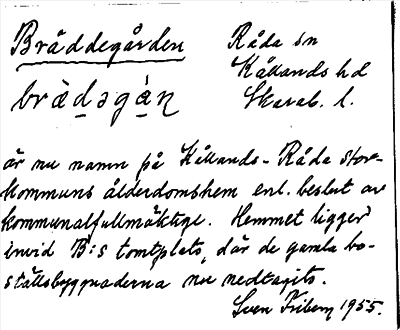 Bråddegården
Råda sn
Kållands hd
Skarab. l.
brå̀dəgàṇ
är nu namn på Kållands-Råda stor-
kommuns ålderdomshem enl. beslut av
kommunalfullmäktige. Hemmet ligger
invid B:s tomtplats, där de gamla bo-
ställsbyggnaderna nu nedtagits.
Sven Friberg 1955.